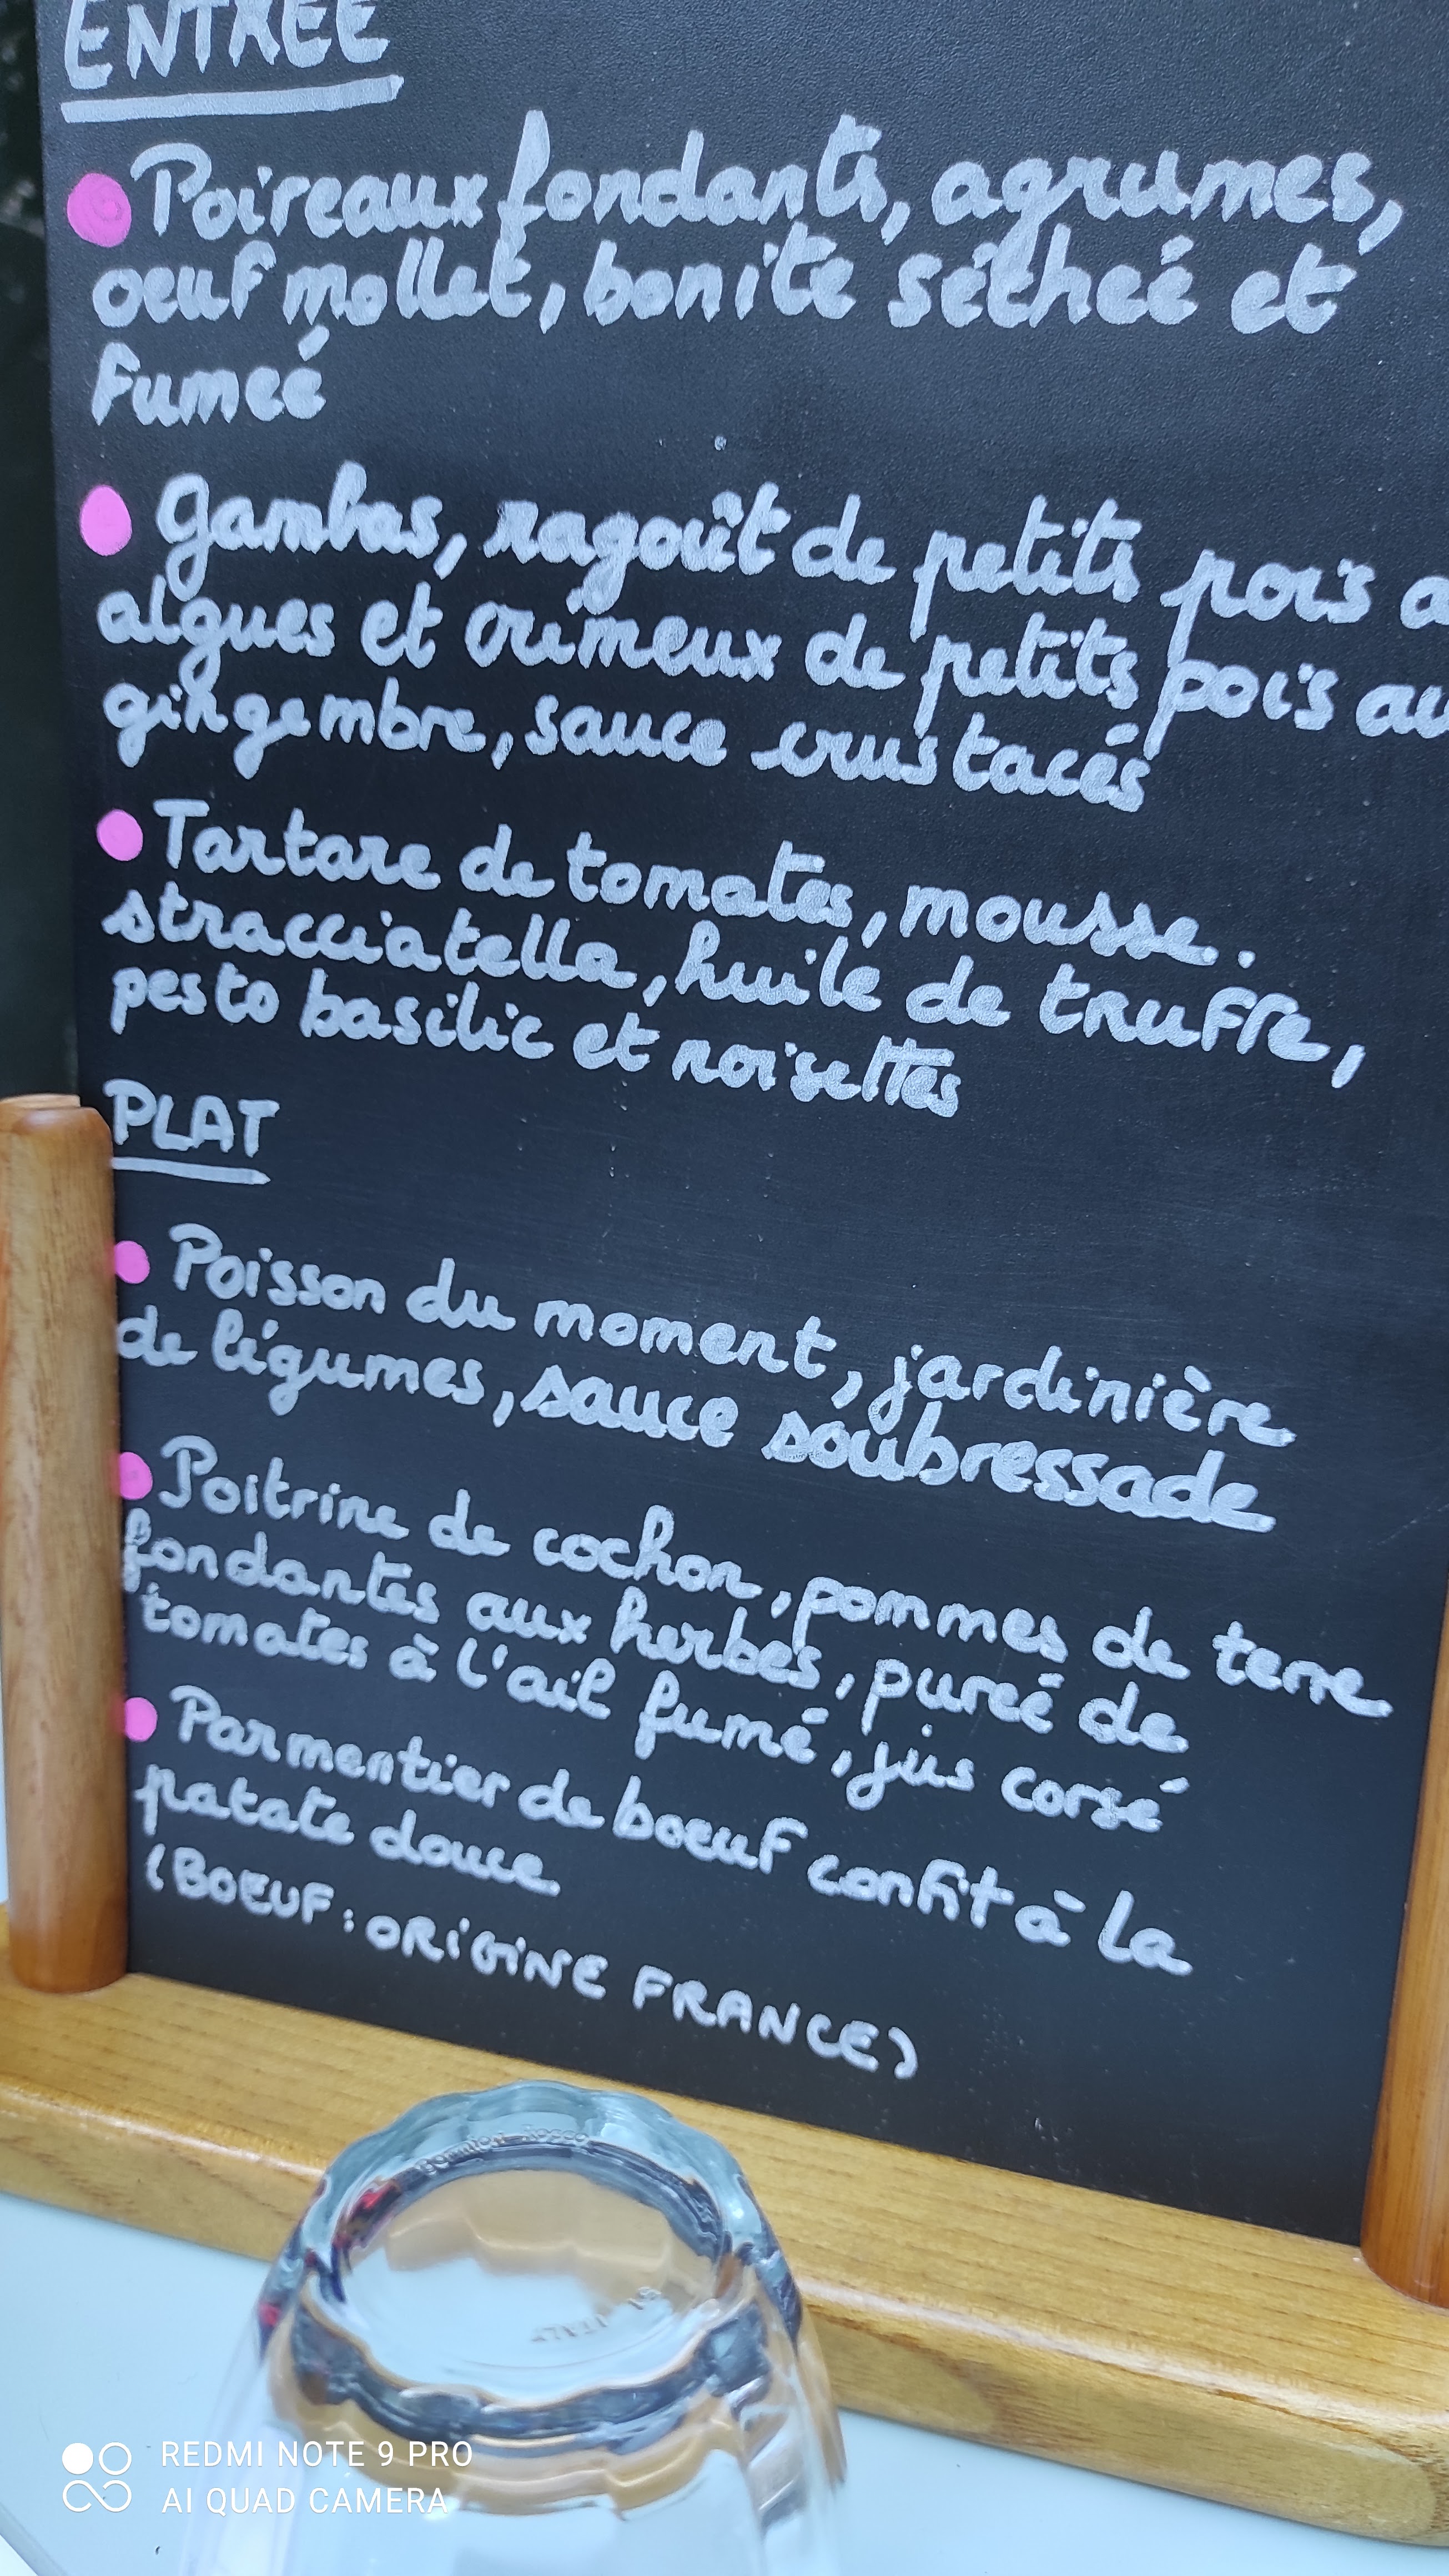 ENTRÉE
Poireaux fondants, agrumes,
oeuf mollet, bonite séchée et
fumée
Gambas, ragoût de petits pois a
algues et crémeux de petits pois au
gingembre, sauce crustacés
Tartare de tomates, mousse.
stracciatella, huile de truffe,
pesto basilic et noisettes
PLAT
Poisson du moment, jardinière
de légumes, sauce soubressade
Poitrine de cochon, pommes de terre
fondantes aux herbes, purée de
tomates à l'ail fumé, jus corsé
Parmentier de boeuf confit à la
patate douce.
(BOEUF : ORIGINE FRANCE)
Bormioli Rocco
ITALY
REDMI NOTE 9 PRO
AI QUAD CAMERA